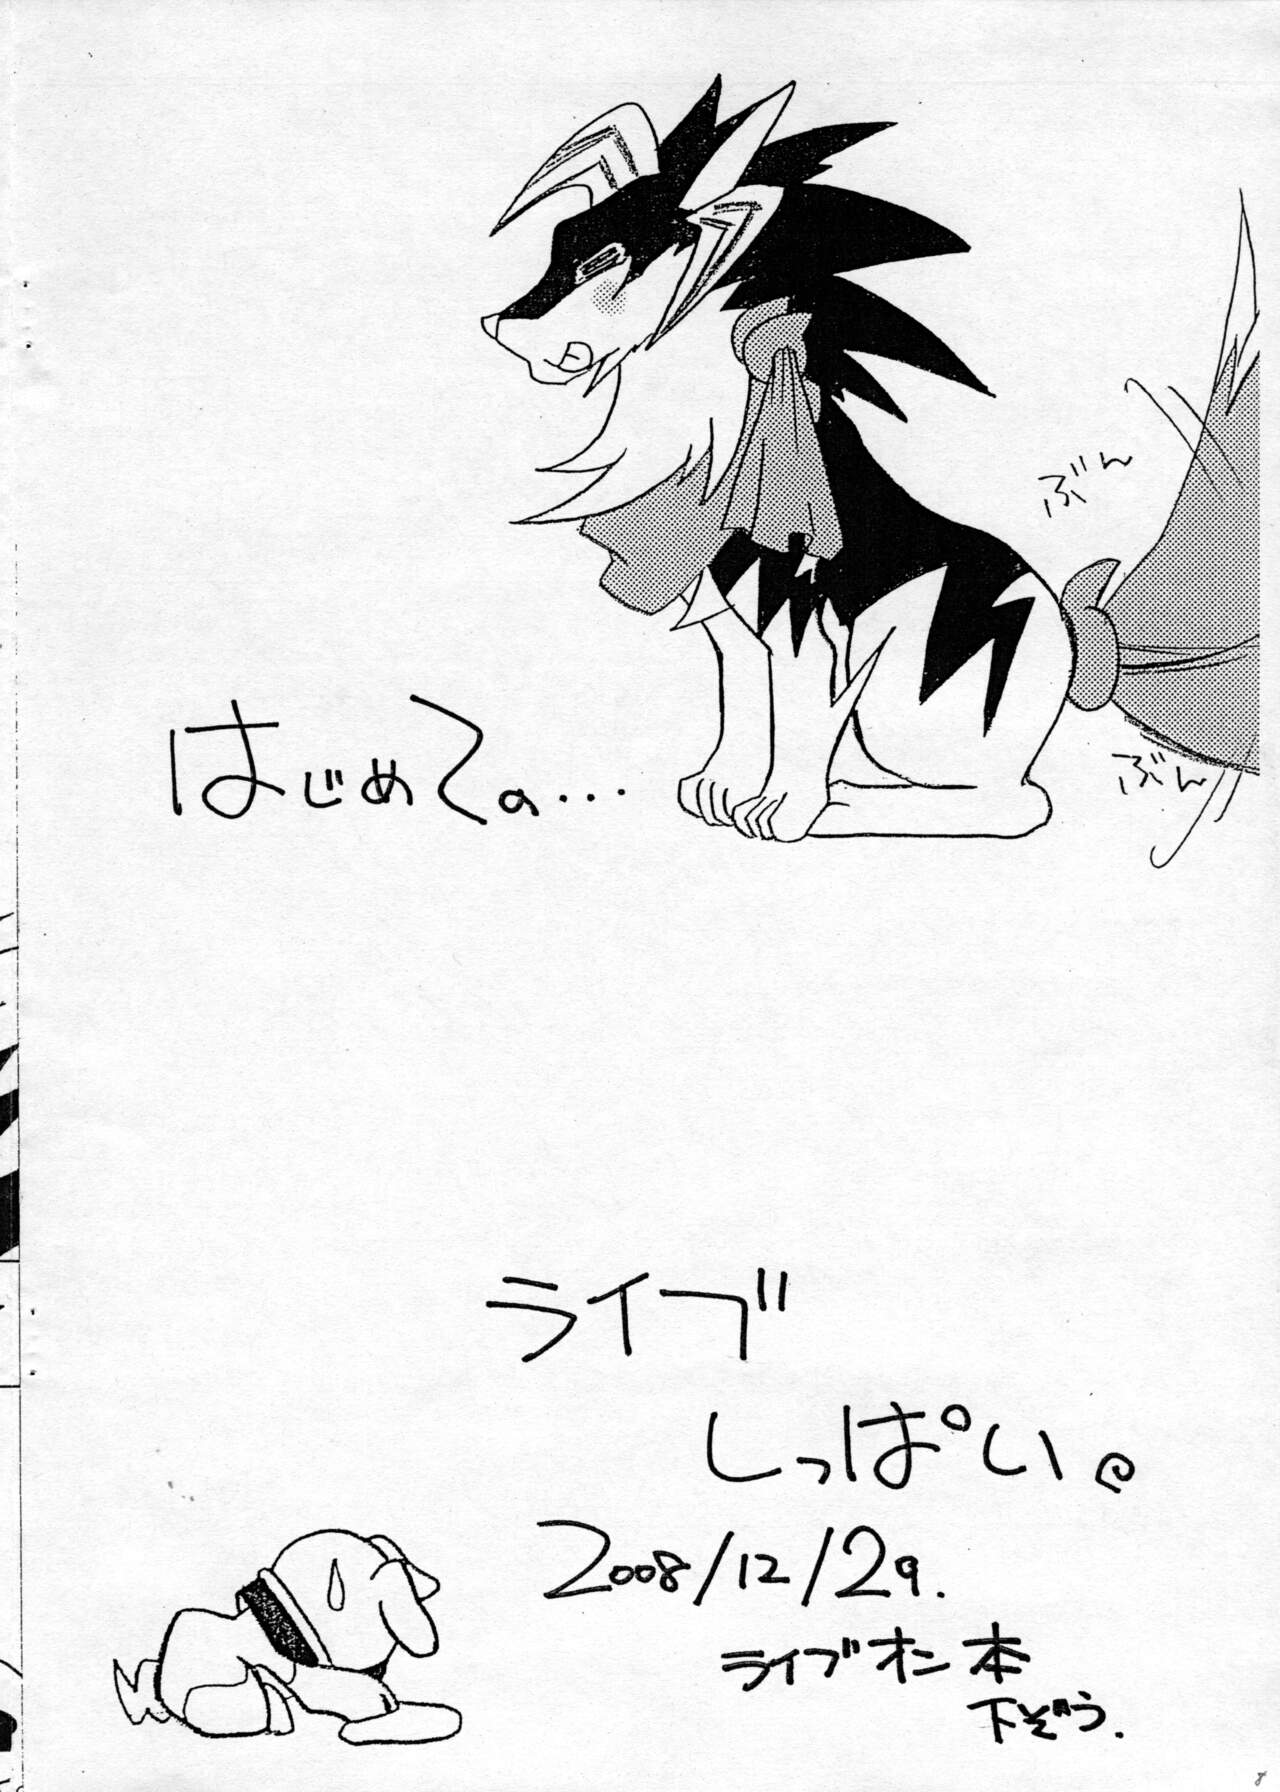 ぶん
はじめての…
ぶん
ライブ
しっぱい。
2008/12/29.
ライブオン本
下ぞう.
8